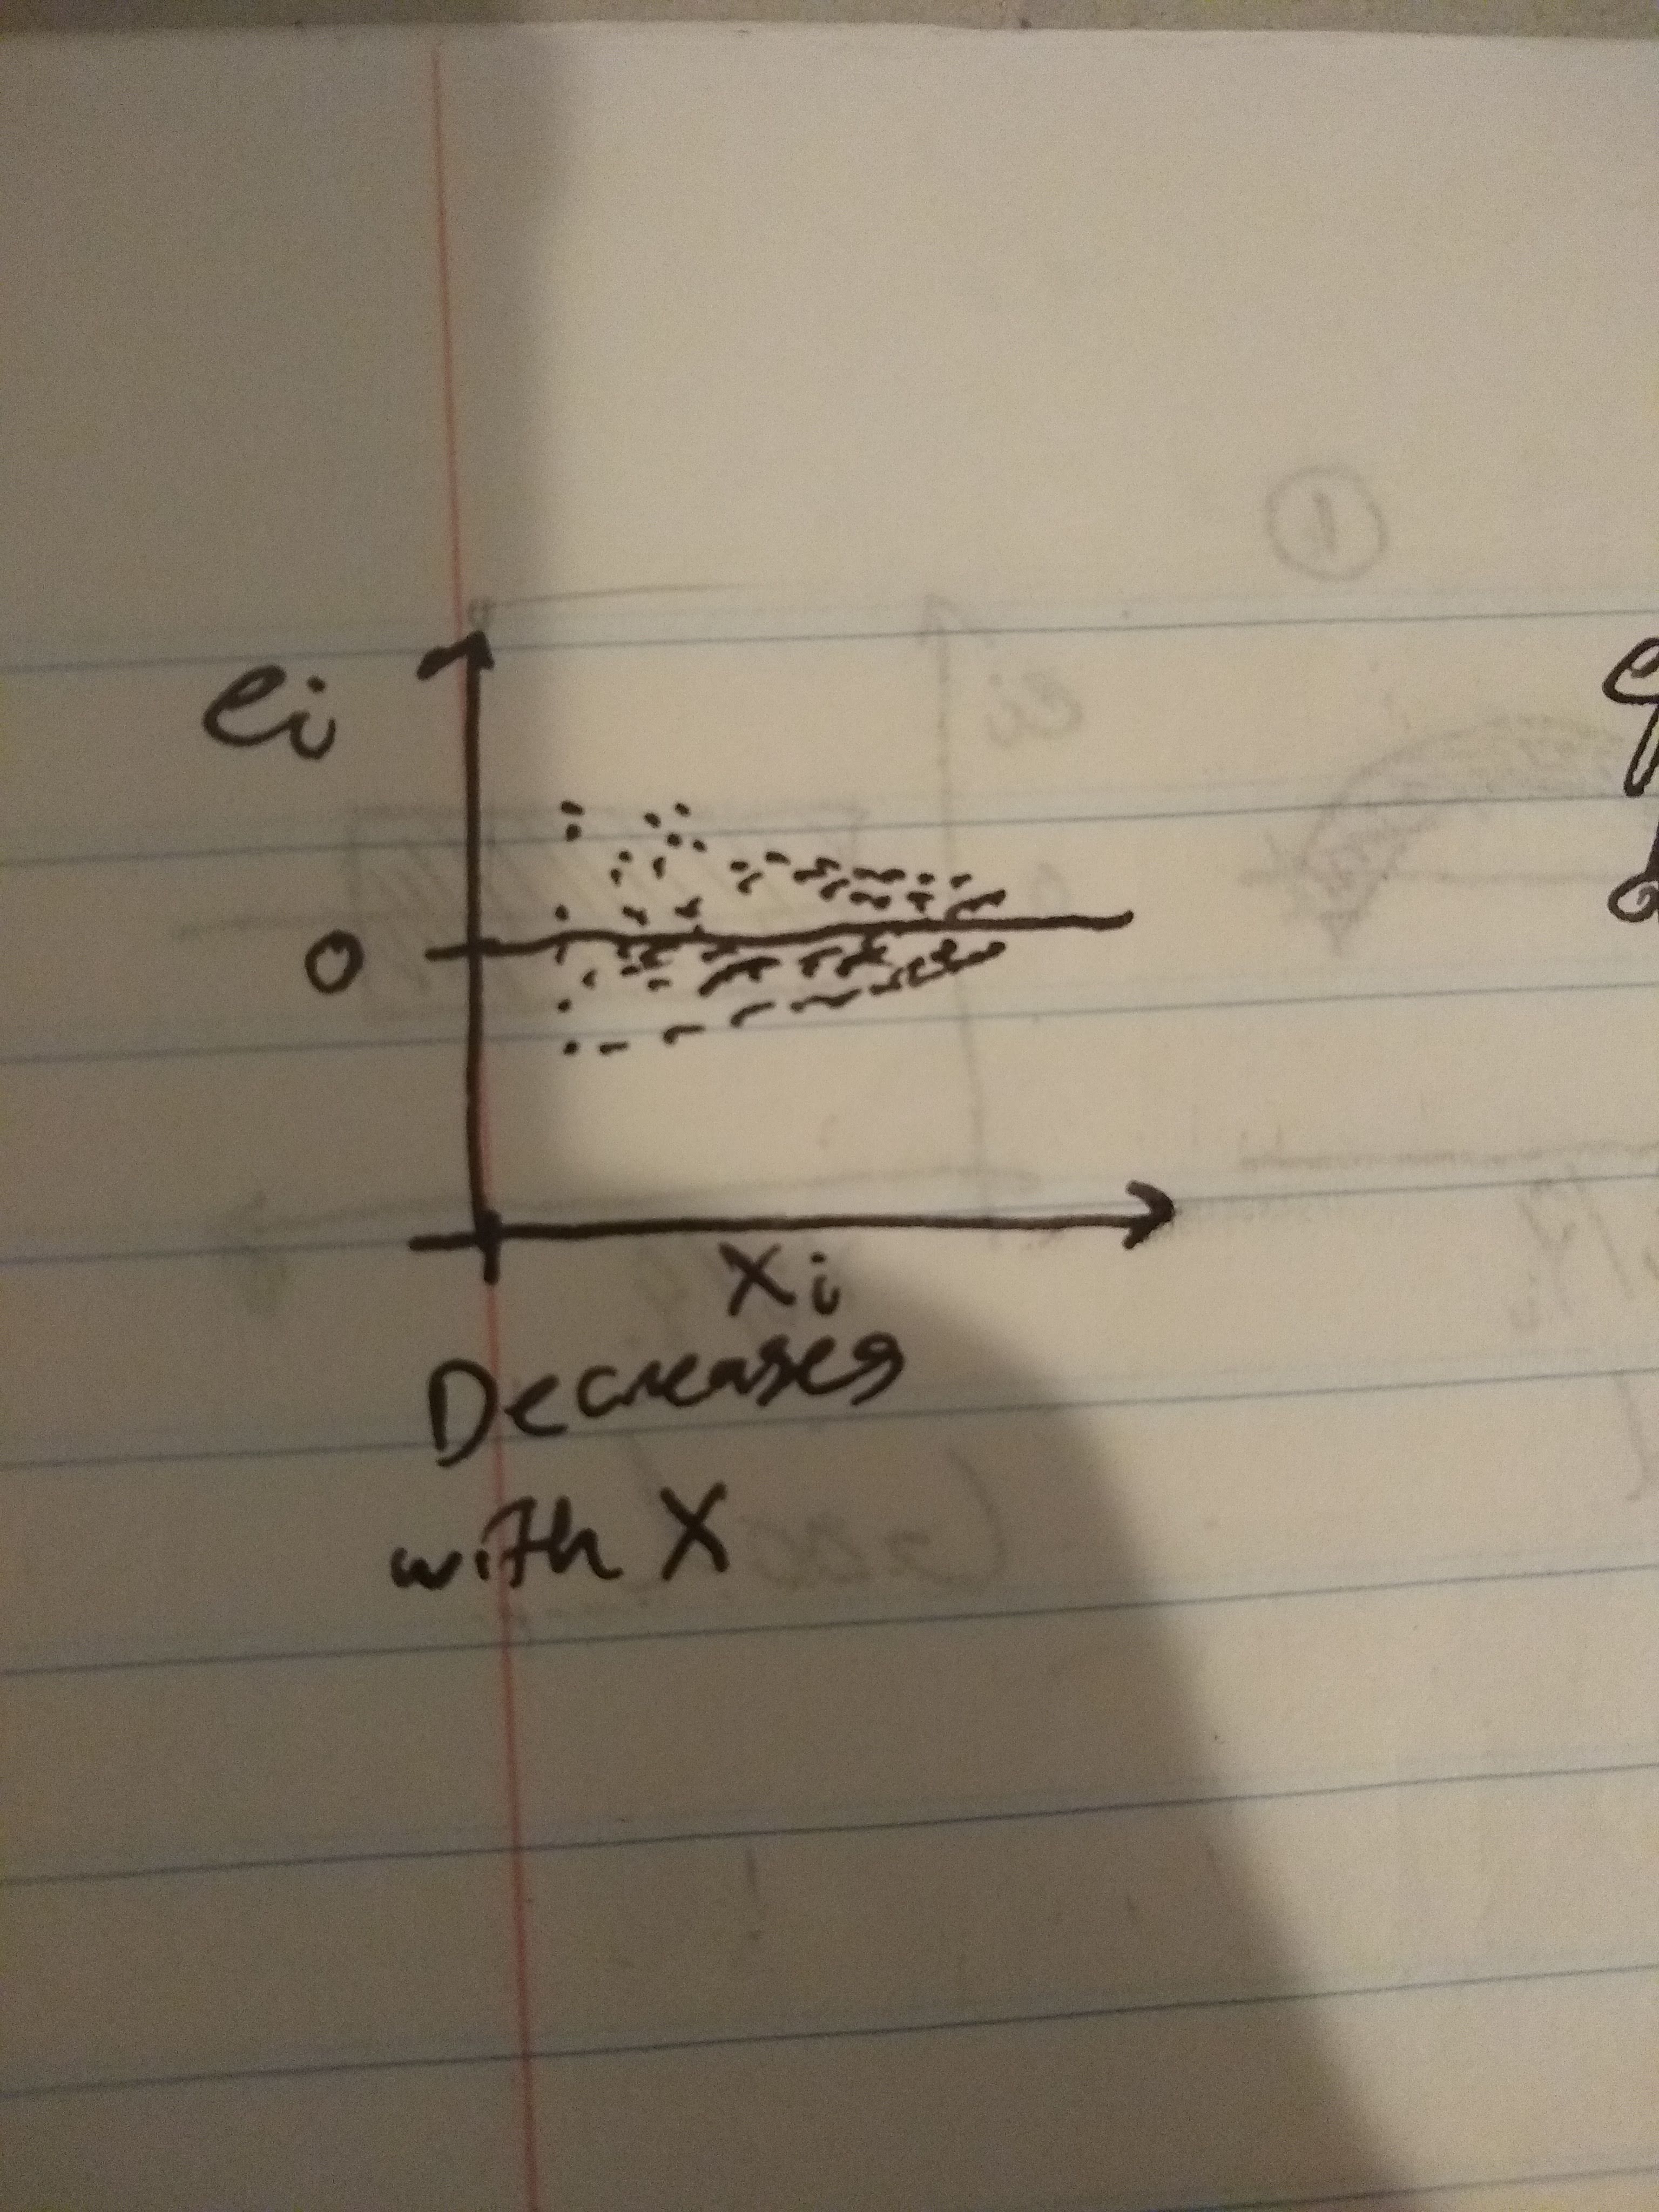 ei
0
xi
Decreases
with X